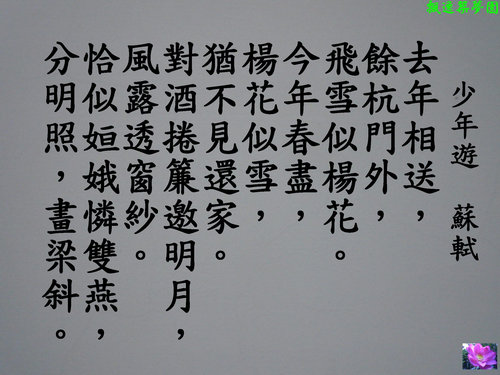 少年遊 蘇軾
去年相送，
餘杭門外，
飛雪似楊花。
今年春盡，
楊花似雪，
猶不見還家。
對酒捲簾邀明月，
風露透窗紗。
恰似姮娥憐雙燕，
分明照，畫梁斜。